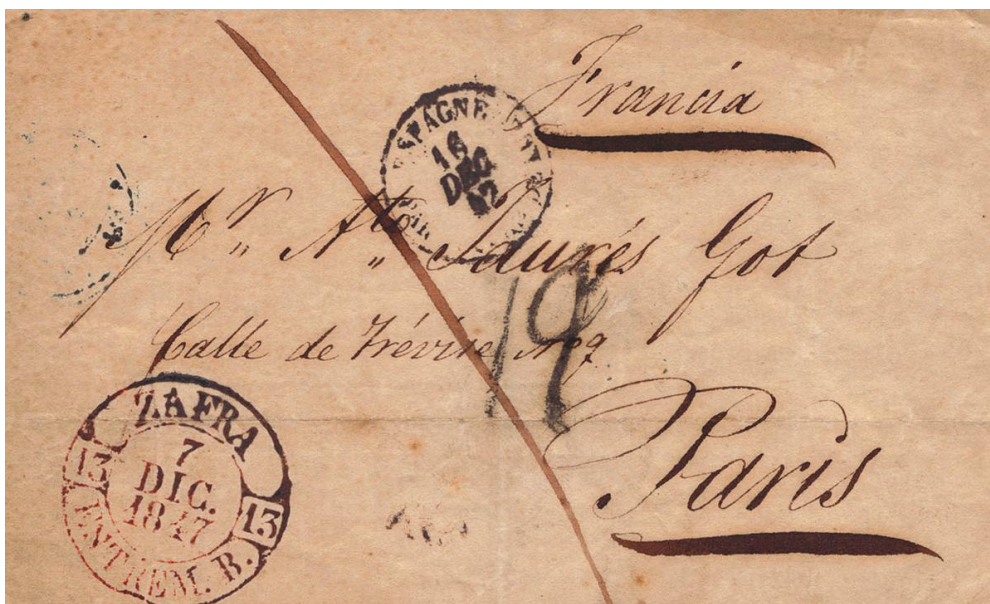 Francia
ESPAGNE
16
DEC
Mr. Ato Saurés Got
Calle de Trévise No 9
19
Paris
ZAFRA
7
DIC.
1847
13
13
ESTREM. B.